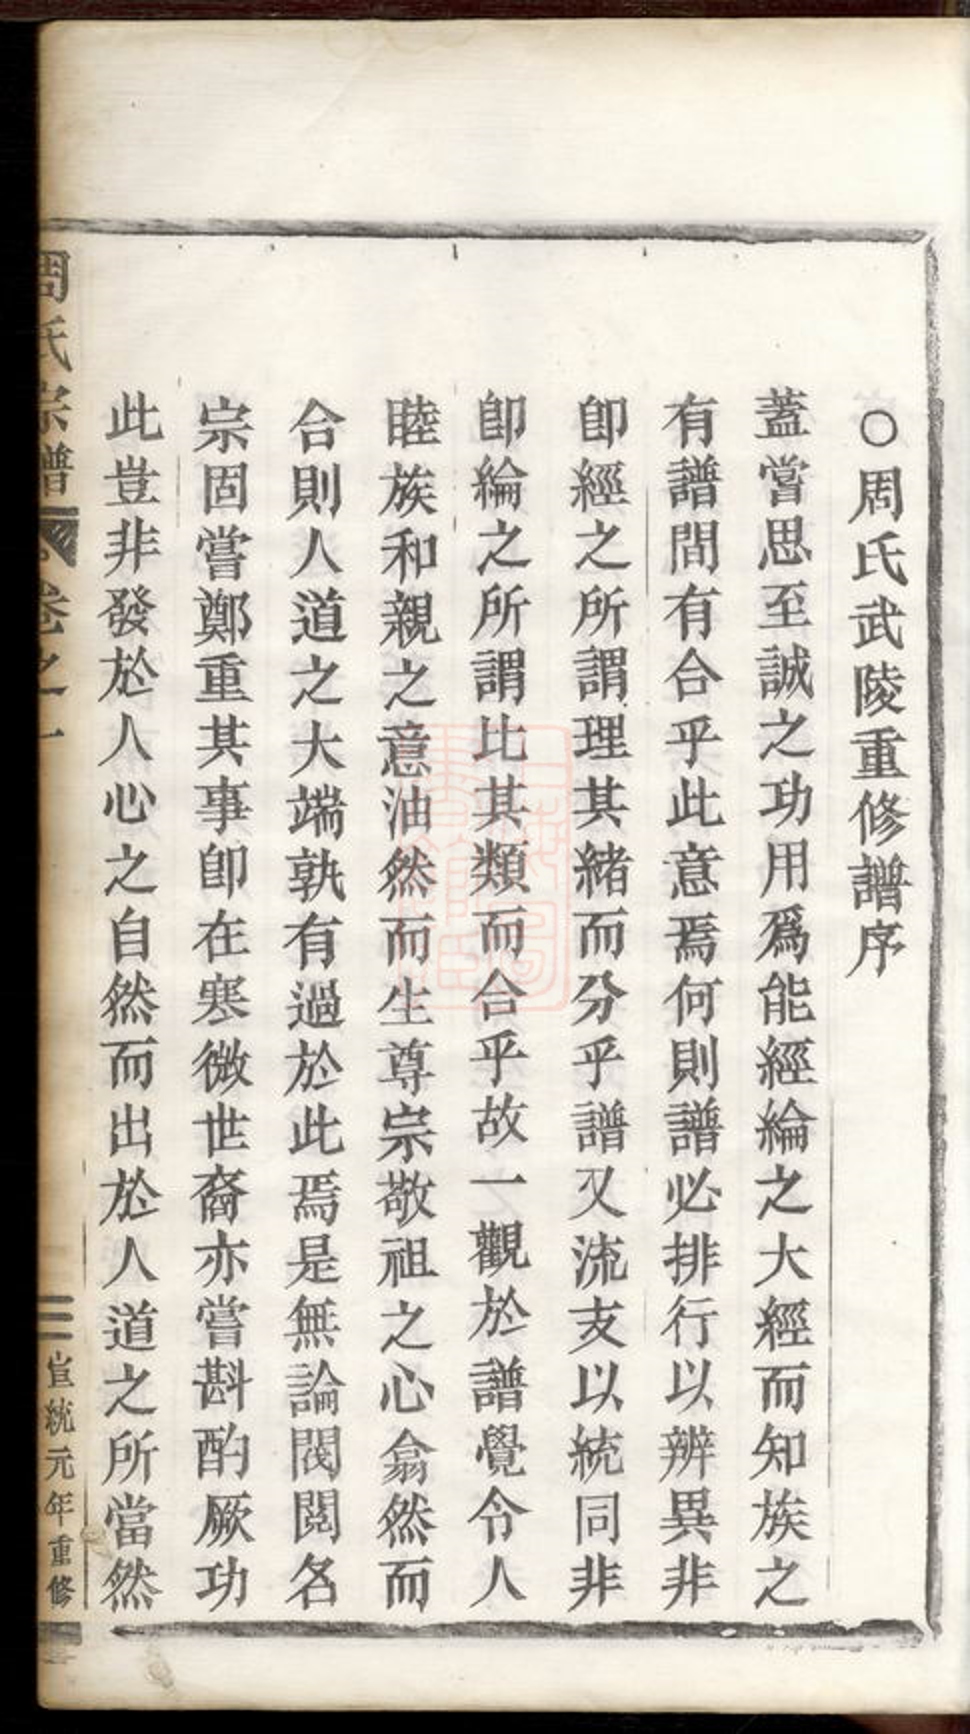 ○周氏武陵重修譜序
蓋嘗思至誠之功用爲能經綸之大經而知族之
有譜間有合乎此意焉何則譜必排行以辨異非
卽經之所謂理其緒而分乎譜又流支以統同非
卽綸之所謂比其類而合乎故一觀於譜覺令人
睦族和親之意油然而生尊宗敬祖之心翕然而
合則人道之大端孰有過於此焉是無論閥閱名
宗固嘗鄭重其事卽在寒微世裔亦嘗斟酌厥功
此豈非發於人心之自然而出於人道之所當然
周氏宗譜 卷之一 三 宣統元年重修